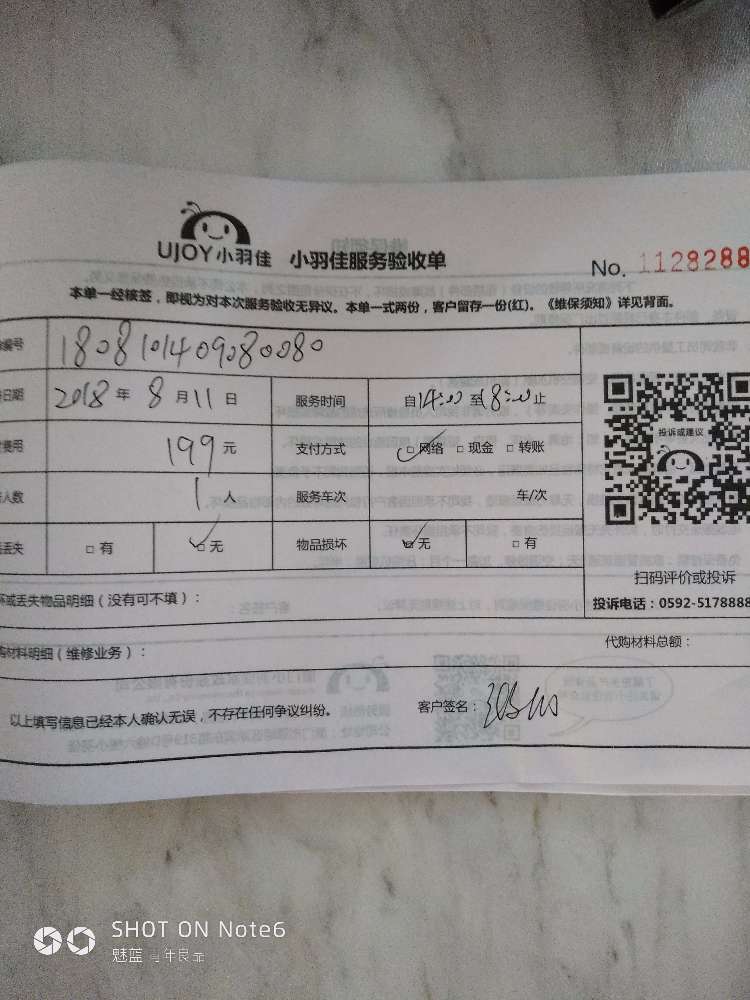 UJOY小羽佳 小羽佳服务验收单
No. 1128288
本单一经核签，即视为对本次服务验收无异议。本单一式两份，客户留存一份(红)。《维保须知》详见背面。
编号 1808101409080080
日期 2018 年 8 月 11 日 服务时间 自14:00 至 8:00止
费用 199 元 支付方式 □网络 □现金 □转账
人数 1 人 服务车次 车/次
丢失 □有 □无 物品损坏 □无 □有
投诉或建议
扫码评价或投诉
投诉电话：0592-5178888
坏或丢失物品明细（没有可不填）：
购材料明细（维修业务）：
代购材料总额：
以上填写信息已经本人确认无误，不存在任何争议纠纷。
客户签名：
SHOT ON Note6
魅蓝 青年良品